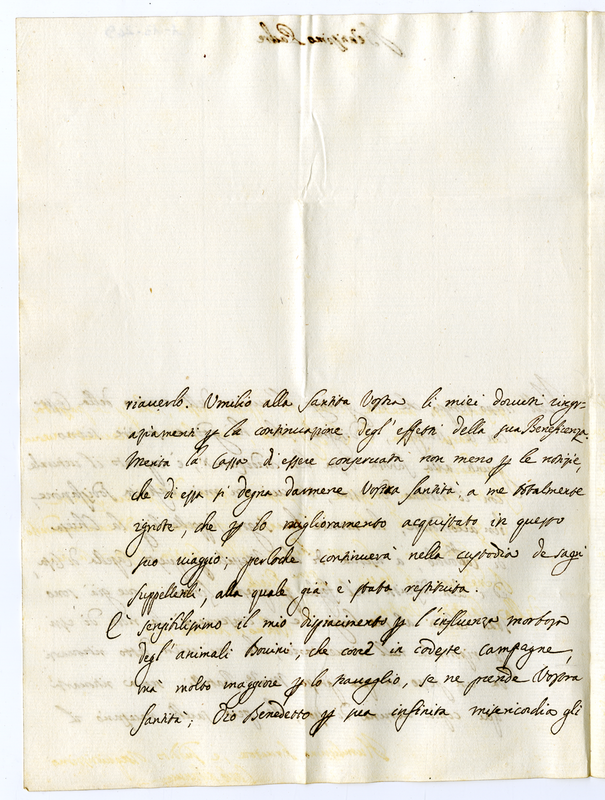 riaverlo. Umilio alla Santità Vostra li miei doveri ringr-
aziamenti p la continuazione degl'effetti della sua Beneficenza.
Merita la Cassa d'essere conservata non meno p le notizie,
che di essa si degna darmene Vostra Santità a me totalmente
ignote, che p lo miglioramento acquistato in questo
suo viaggio; perloche continuerà nella custodia de sagri
suppellettili, alla quale già è stata restituita.
È sensibilissimo il mio dispiacimento p l'influenza morbosa
degl'animali Bovini, che core in codeste campagne,
mà molto maggiore p lo travaglio, se ne prende Vostra
Santità; Dio Benedetto p sua infinita misericordia gli